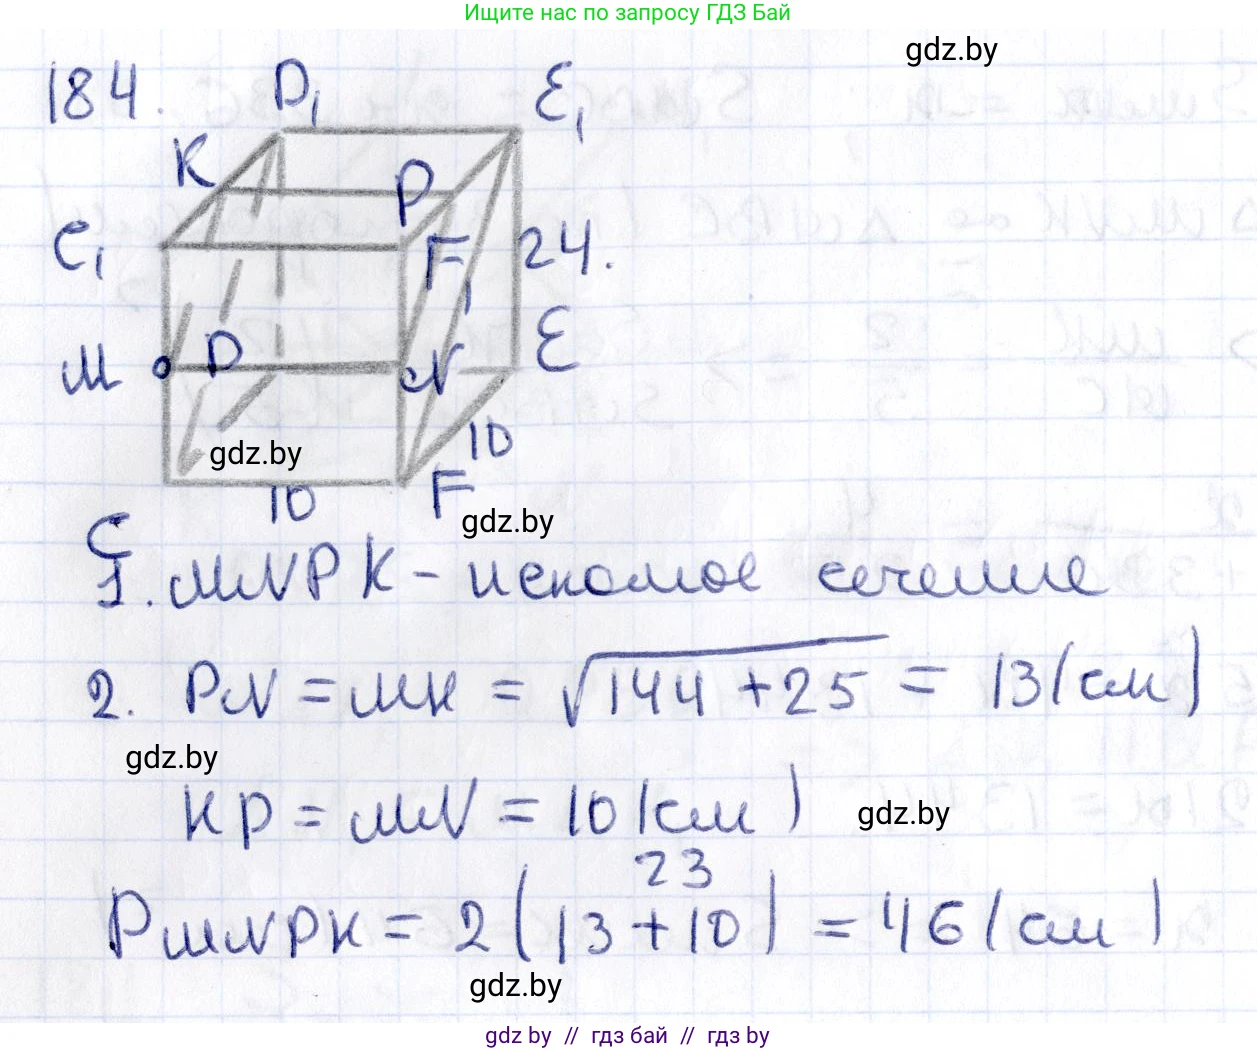 Ищите нас по запросу ГДЗ Бай
gdz.by
184.
D₁
E₁
K
P
C₁
F₁
24.
M
D
N
E
10
gdz.by
10
F
gdz.by
C
1. MNPK - искомое сечение
2. PN = MK = √144 + 25 = 13 (см)
gdz.by
KP = MN = 10 (см)
gdz.by
23
PMNPK = 2 (13 + 10) = 46 (см)
gdz.by
gdz by // гдз бай // гдз by